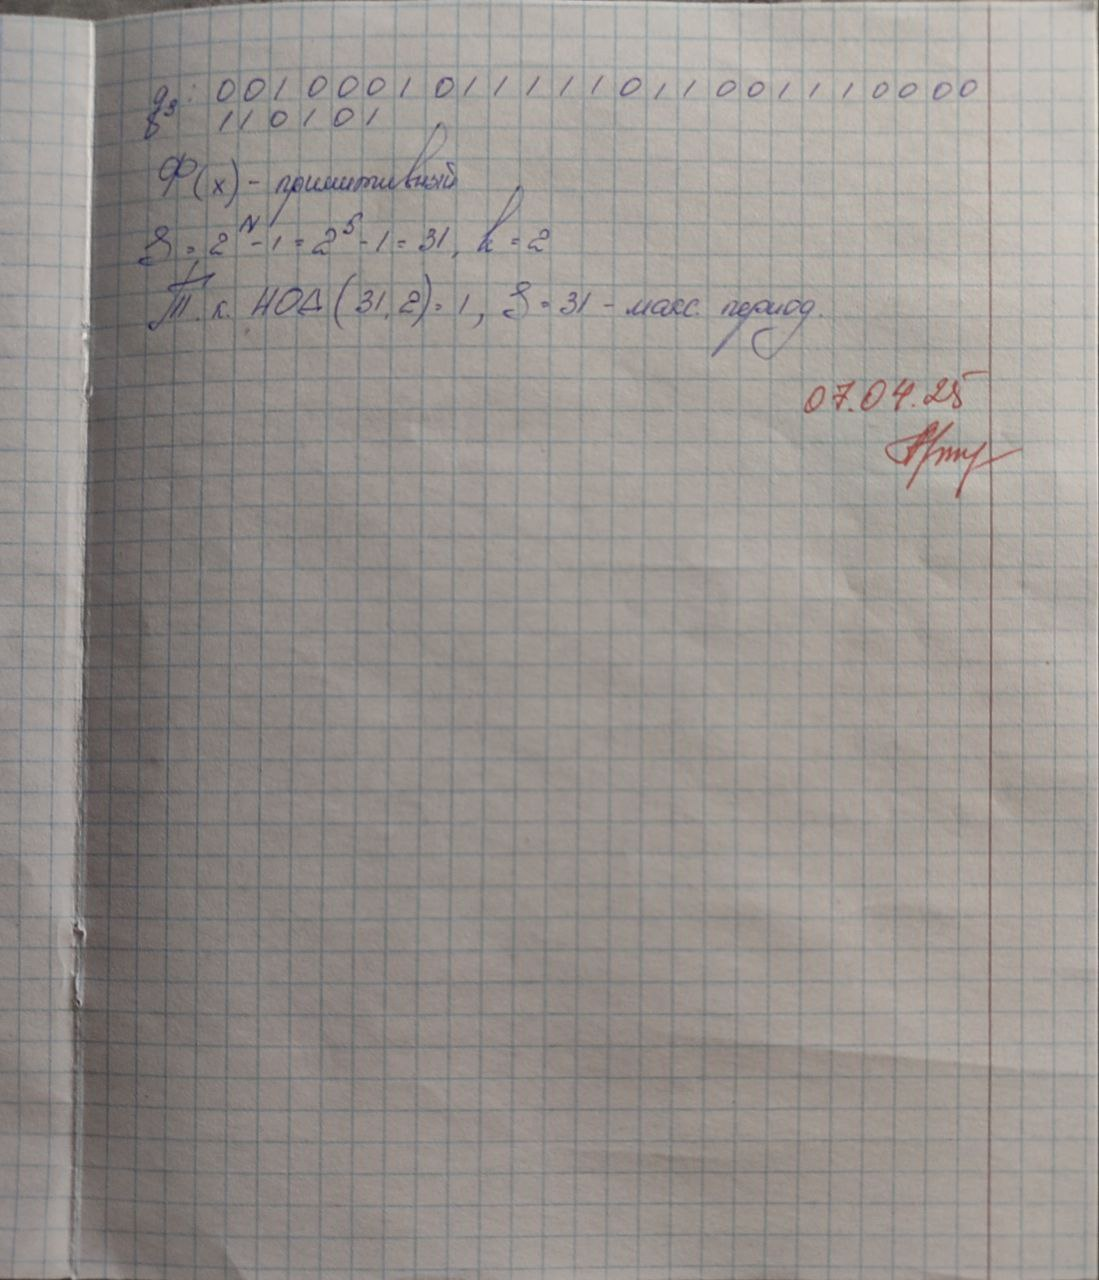 q₃: 00100010111111011001110000
110101
Ф(x) - примитивный
S = 2^N - 1 = 2^5 - 1 = 31, k = 2
Т. к. НОД (31, 2) = 1, S = 31 - макс. период.
07.04.25